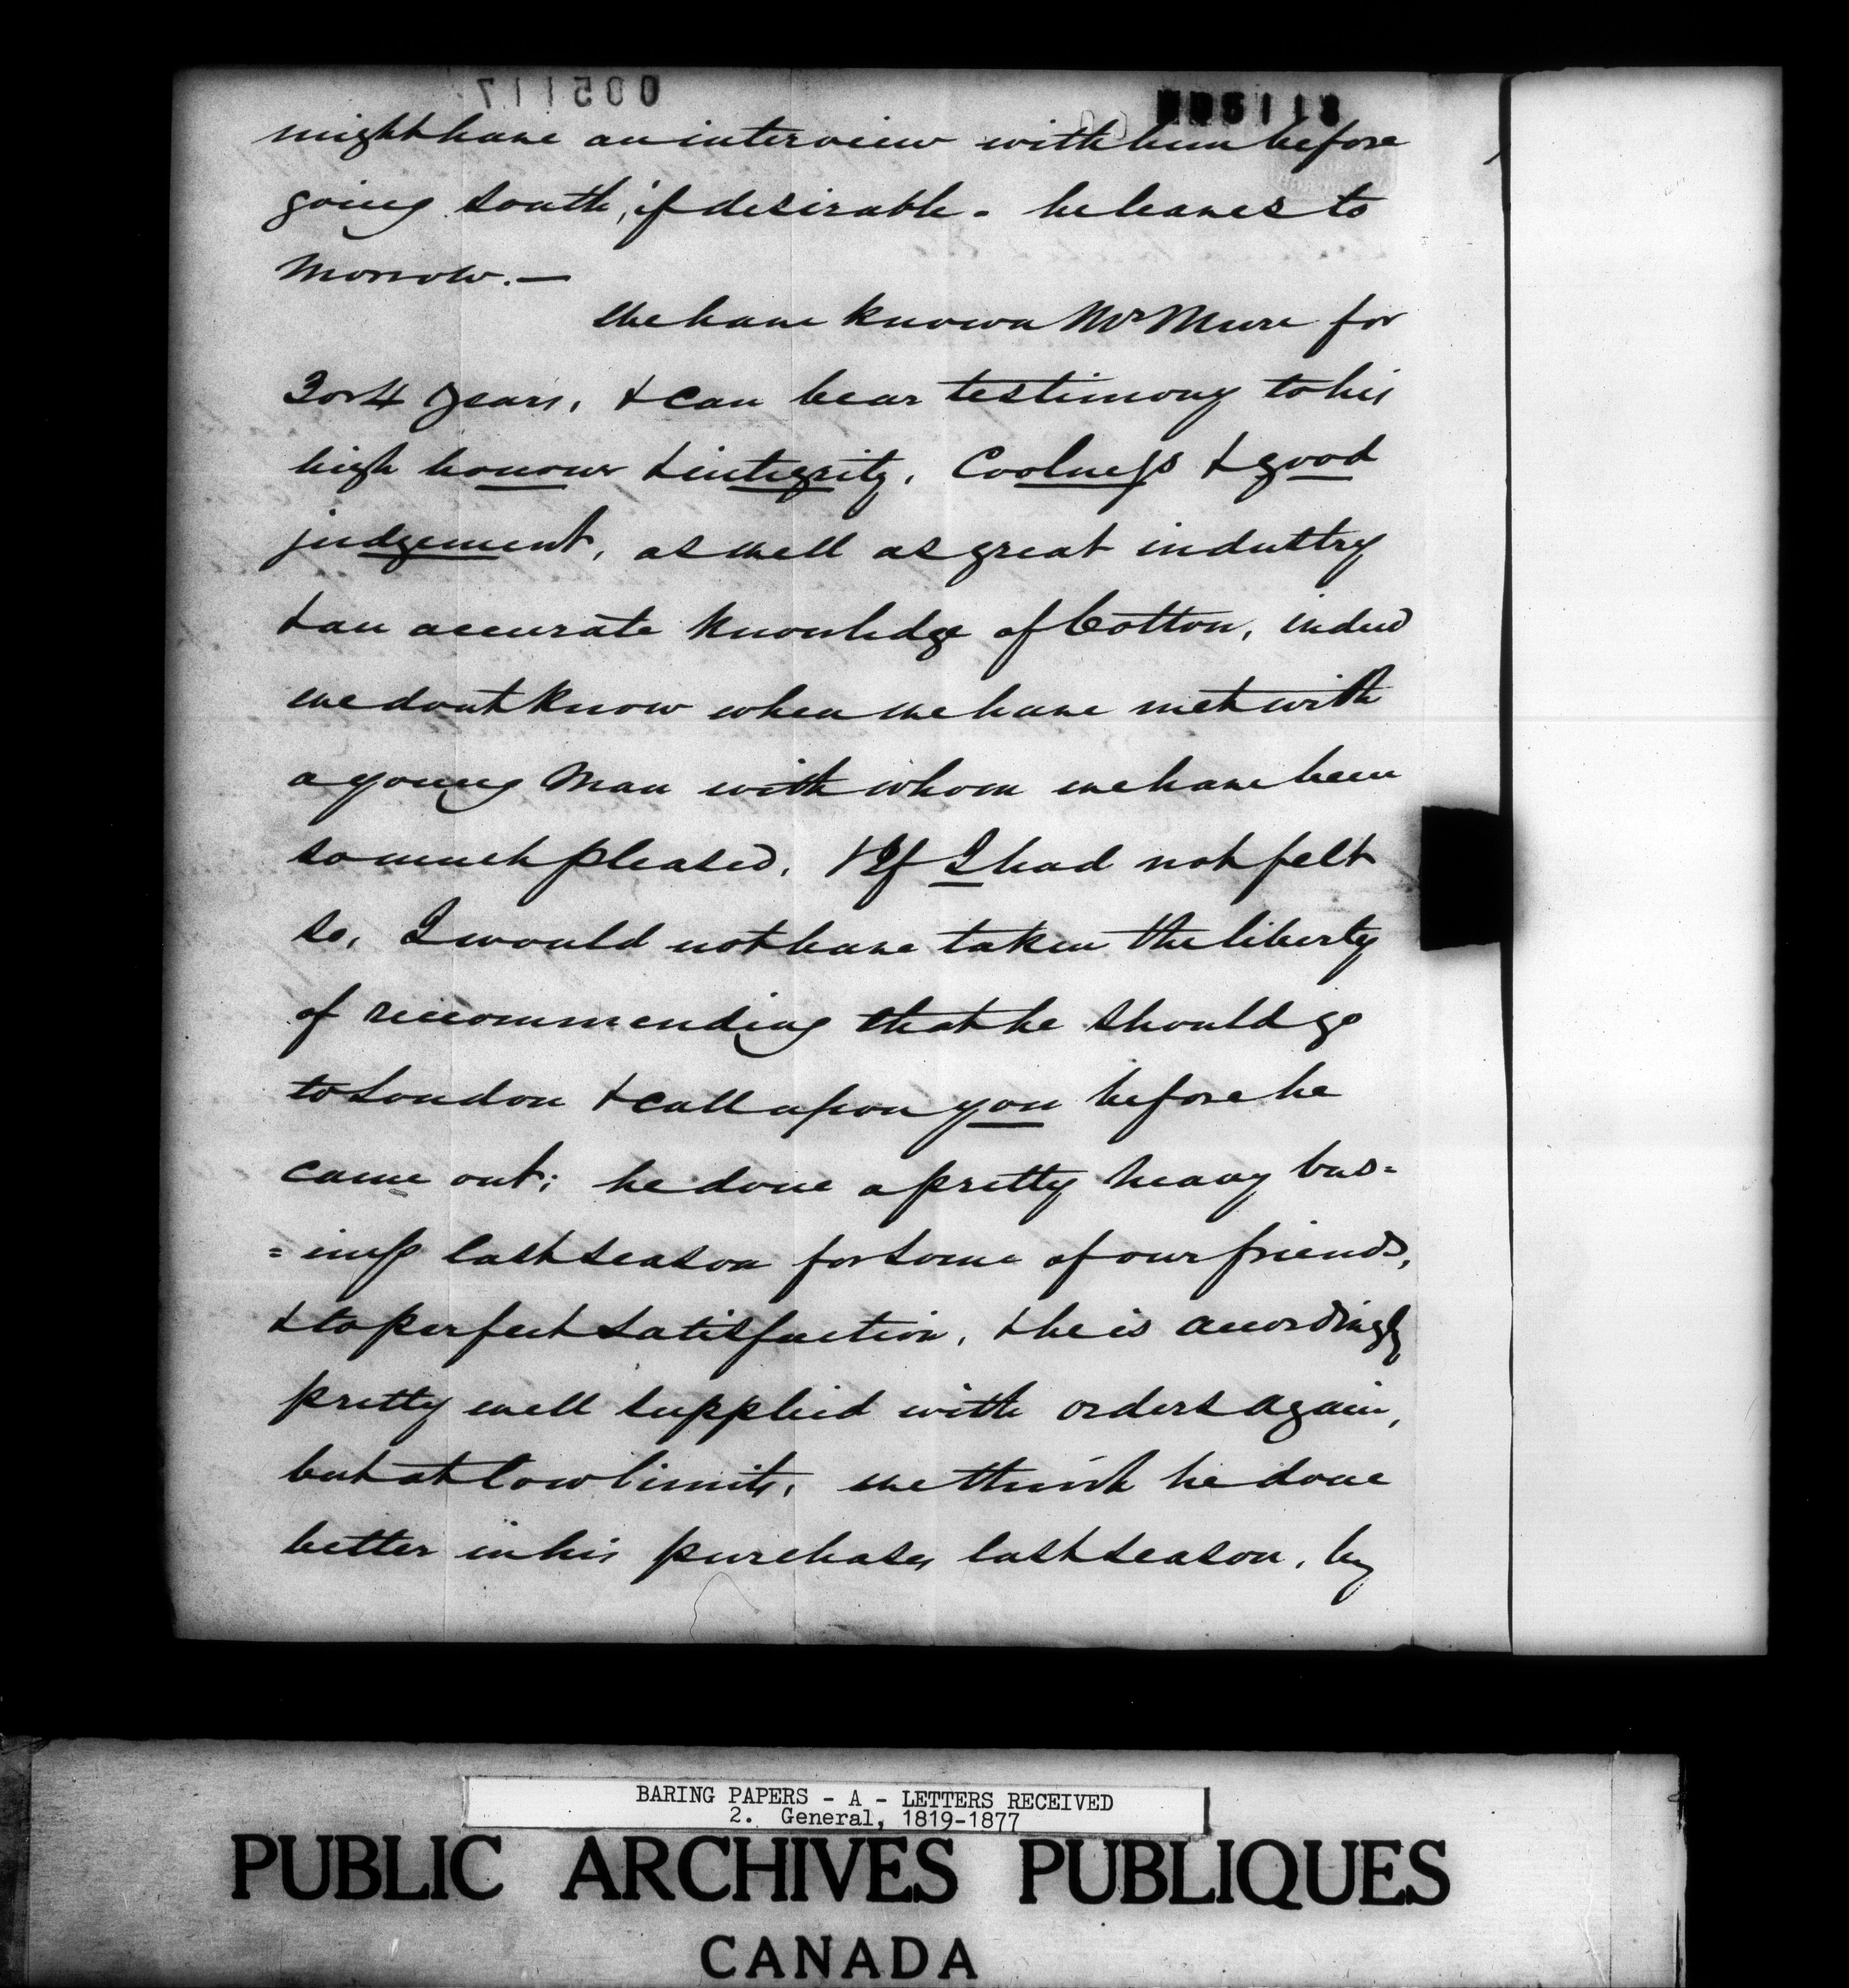 005117
005118
might have an interview with him before
going South, if desirable. he leaves to
morrow.—
We have known Mr Mure for
3 or 4 years, & can bear testimony to his
high honour & integrity, Coolness & good
judgement, as well as great industry
& an accurate knowledge of Cotton, indeed
we dont know when we have met with
a young Man with whom we have been
so much pleased. & If I had not felt
so, I would not have taken the liberty
of reccommending that he should go
to London & call upon you before he
came out; he done a pretty heavy bus=
=iness last season for some of our friends,
& to perfect satisfaction, & he is accordingly
pretty well supplied with orders again,
but at low limits, we think he done
better in his purchases last season, by
BARING PAPERS - A - LETTERS RECEIVED
2. General, 1819-1877
PUBLIC ARCHIVES PUBLIQUES
CANADA